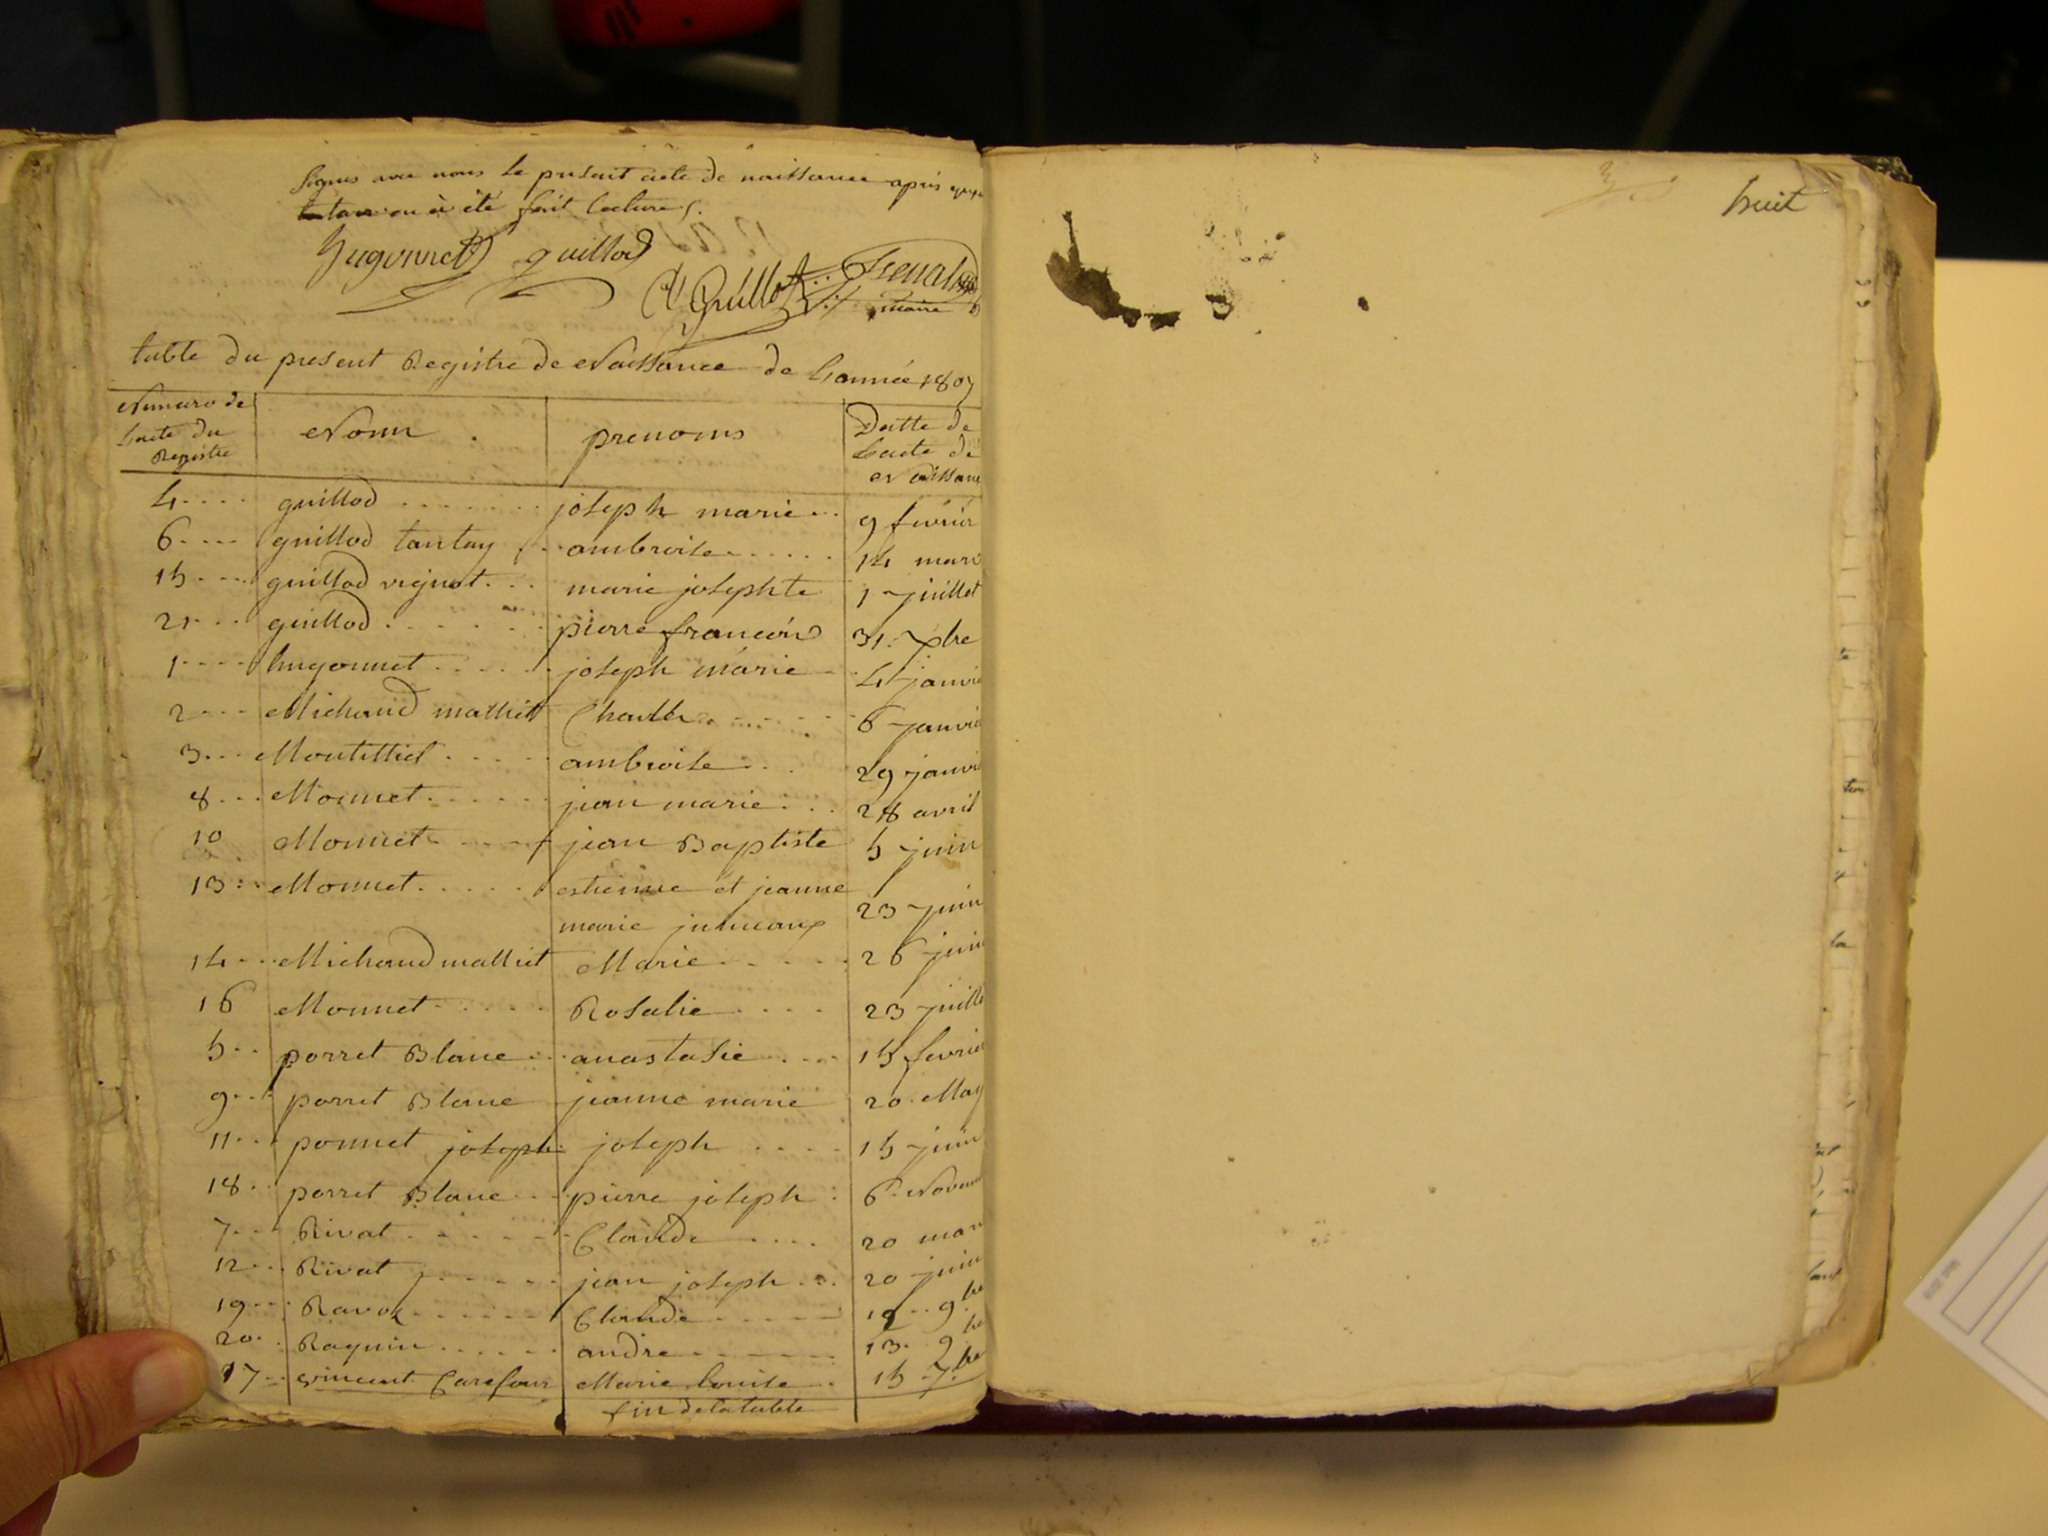 signés avec nous le présent acte de naissance après
en a été fait lecture.
hugonnet guillod
Guillot
maire
table du present Registre de Naissance de L'année 1807
Numero de Nom prenoms Datte de
L'acte du L'acte de
Registre Naissance
4 guillod joseph marie 9 fevrier
6 guillod tantay ambroise 14 mars
15 guillod vignot marie josephte 1 juillet
21 guillod pierre françois 31 xbre
1 hugonnet joseph marie 4 janvie
2 Michaud Charles 6 janvie
3 ambroise 29 janvi
8 Monnet jean marie 28 avril
10 Monnet jean Baptiste 5 juin
13 Monnet estienne et jeanne
marie jumeaux 23 juin
14 Michaud Marie 26 juin
16 Monnet Rosalie 23 juille
5 porret Blanc anastasie 15 fevrier
9 porret Blanc jeanne marie 20 May
11 ponnet joseph joseph 15 juin
18 porret Blanc pierre joseph 6 Novem
7 Rivat Claude 20 mar
12 Rivat jean joseph 20 juin
19 Ravoz Claude 12 9bre
20 Raymin andre 13 9bre
17 vincent Carefour Marie Louise 15 7bre
fin de la table
huit